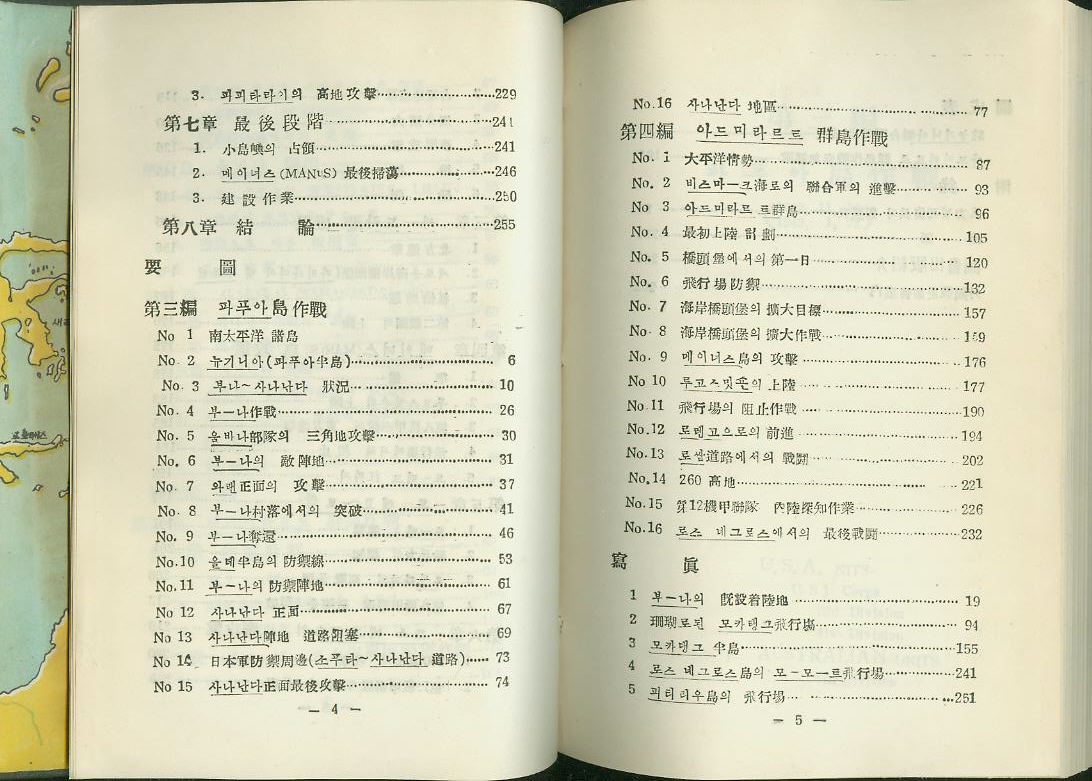 3. 피피타라기의 高地攻擊 229
第七章 最後段階 241
1. 小島嶼의 占領 241
2. 메이너스(MANUS) 最後掃蕩 246
3. 建設作業 250
第八章 結論 255
要圖
第三編 파푸아島作戰
No 1 南太平洋 諸島
No. 2 뉴기니아(파푸아半島) 6
No. 3 부나~사나난다 狀況 10
No. 4 부ー나作戰 26
No. 5 울바나部隊의 三角地攻擊 30
No. 6 부ー나의 敵陣地 31
No. 7 와렌正面의 攻擊 37
No. 8 부ー나村落에서의 突破 41
No. 9 부ー나奪還 46
No.10 울데半島의 防禦線 53
No.11 부ー나의 防禦陣地 61
No 12 사나난다 正面 67
No 13 사나난다陣地 道路阻塞 69
No 14 日本軍防禦周邊(소푸타~사나난다 道路) 73
No 15 사나난다正面最後攻擊 74
— 4 —
No.16 사나난다 地區 77
第四編 아드미라르트 群島作戰
No. 1 太平洋情勢 87
No. 2 비스마ー크海로의 聯合軍의 進擊 93
No 3 아드미라르트群島 96
No. 4 最初上陸 計劃 105
No. 5 橋頭堡에서의 第一日 120
No. 6 飛行場防禦 132
No. 7 海岸橋頭堡의 擴大目標 157
No. 8 海岸橋頭堡의 擴大作戰 159
No. 9 메이너스島의 攻擊 176
No 10 루고스밋숀의 上陸 177
No.11 飛行場의 阻止作戰 190
No.12 로렝고으로의 前進 194
No.13 로쌈道路에서의 戰鬪 202
No.14 260 高地 221
No.15 第12機甲聯隊 內陸探知作業 226
No.16 로스 네그로스에서의 最後戰鬪 232
寫眞
1 부ー나의 旣設着陸地 19
2 珊瑚로된 모카탱그飛行場 94
3 모카탱그 半島 155
4 로스 네그로스島의 모ー모ー트飛行場 241
5 피티리우島의 飛行場 251
— 5 —